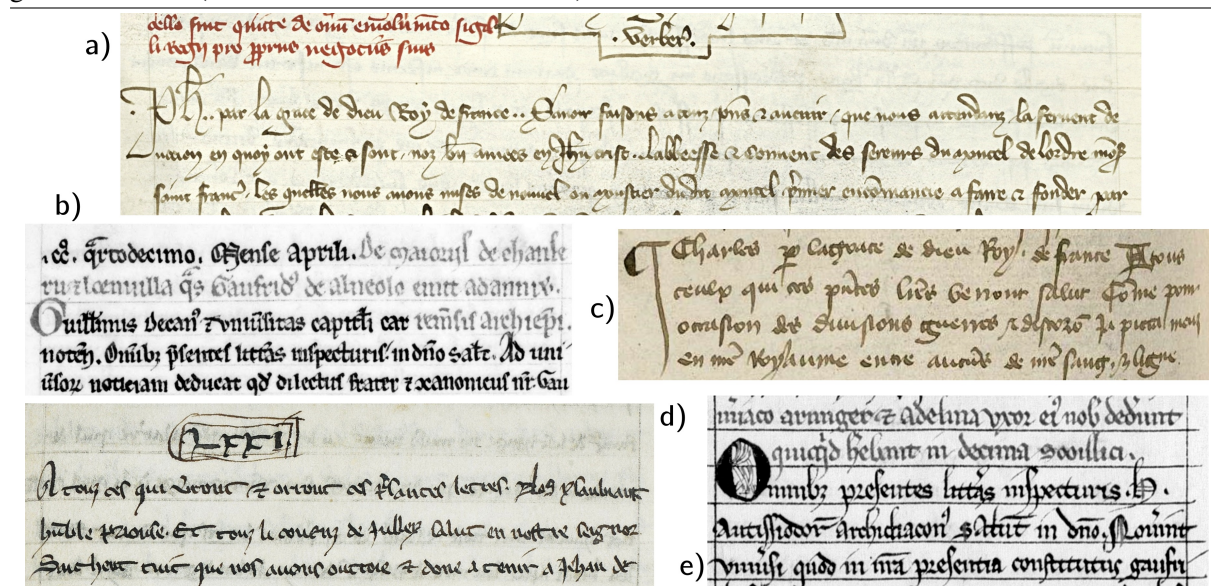 a)
dello sint quitte de om̄i emolum̄to sigil
li regii pro p̱prius negociis suis
. verber̄.
Ph̄. par la grace de dieu Roy de france .. Savoir faisons a touz p̄ns & avenir, que nous attendanz la fervent de
uocion en quoy ont este & sont, noz bn̄ amees en Jh̄u crist . labbeesse & couvent des sereurs du moncel de lordre mōs
saint franc̄, les quelles nous avons mises de nouvel ou moustier du dit moncel p̄mier encōmancie a faire & fonder par
b)
.cc̊. q̄rtodecimo. Mense Aprili. De maioriſ de chanle
Guillmus Decan̾ ⁊ vniūſitas capitłi cat remēſis archiep̄i.
notēſ. Omib; p̄ſentes litt̄as inſpecturiſ in dn̄o sal̄t. Ad uni
ūſor̄ noticiam deducat qd̾ dilectus frater ⁊ xanonicus nr̄ Gau
c)
Charles p̱ la grace de dieu Roy de france A tous
ceulx qui ces p̄ntes lr̄es verront salut Cōme pour
occasion des divisions guerres & discors Ja pieca meuz
en nr̄e Royaume entre aucūs de nr̄e sang & ligne
LXXI
A touz ces qui verront & orront ces p̄santes letres.
hūble Prieuse. Et touz li couenz de Juller salut en nostre seignor
Sachent tuit que nos auons outroie & done a tenir a Jehan de
d)
armiger & Adelina vxor ei̾ nob̄ dedunt
quicq̄d hēbant in decima
Omnib; presentes litt̄as inspecturis. H.
Autissiodor̄ archidiacon̾ salut̄ in dn̄o. Nouint
vniūsi quod in nr̄a presentia constitutus
e)